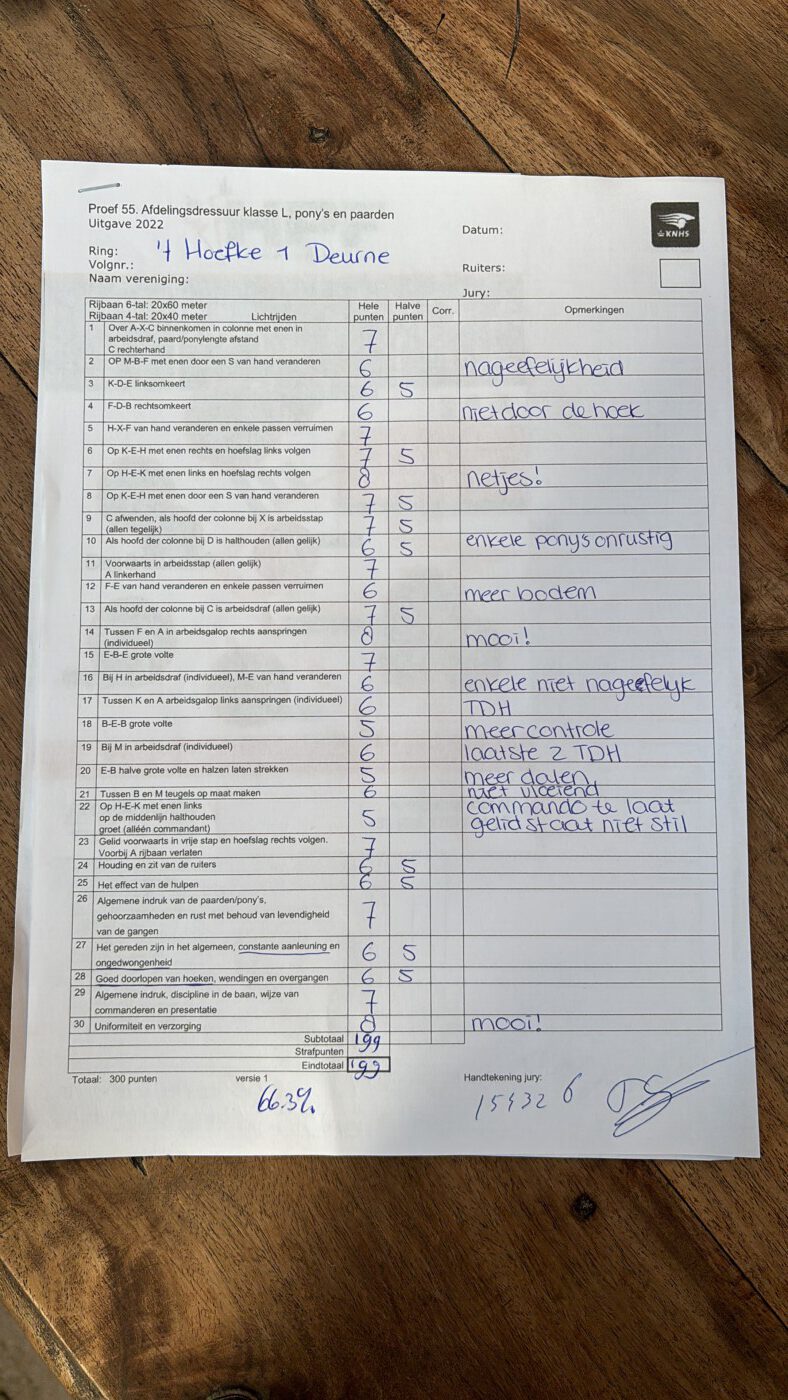 Proef 55. Afdelingsdressuur klasse L, pony's en paarden
Uitgave 2022
Datum:
KNHS
Ring: 't Hoefke 1 Deurne
Volgnr.:
Ruiters:
Naam vereniging:
Jury:
Rijbaan 6-tal: 20x60 meter
Rijbaan 4-tal: 20x40 meter Lichtrijden Hele punten Halve punten Corr. Opmerkingen
1 Over A-X-C binnenkomen in colonne met enen in
arbeidsdraf, paard/ponylengte afstand 7
C rechterhand
2 OP M-B-F met enen door een S van hand veranderen 6 nageefelijkheid
3 K-D-E linksomkeert 6 5
4 F-D-B rechtsomkeert 6 niet door de hoek
5 H-X-F van hand veranderen en enkele passen verruimen 7
6 Op K-E-H met enen rechts en hoefslag links volgen 7 5
7 Op H-E-K met enen links en hoefslag rechts volgen 8 netjes!
8 Op K-E-H met enen door een S van hand veranderen 7 5
9 C afwenden, als hoofd der colonne bij X is arbeidsstap 7 5
(allen tegelijk)
10 Als hoofd der colonne bij D is halthouden (allen gelijk) 6 5 enkele pony's onrustig
11 Voorwaarts in arbeidsstap (allen gelijk) 7
A linkerhand
12 F-E van hand veranderen en enkele passen verruimen 6 meer bodem
13 Als hoofd der colonne bij C is arbeidsdraf (allen gelijk) 7 5
14 Tussen F en A in arbeidsgalop rechts aanspringen 8 mooi!
(individueel)
15 E-B-E grote volte 7
16 Bij H in arbeidsdraf (individueel), M-E van hand veranderen 6 enkele niet nageefelyk
17 Tussen K en A arbeidsgalop links aanspringen (individueel) 6 TDH
18 B-E-B grote volte 5 meer controle
19 Bij M in arbeidsdraf (individueel) 6 laatste 2 TDH
20 E-B halve grote volte en halzen laten strekken 5 meer dalen
21 Tussen B en M teugels op maat maken 6 niet vloeiend
22 Op H-E-K met enen links commando te laat
op de middenlijn halthouden 5 gelid staat niet stil
groet (alléén commandant)
23 Gelid voorwaarts in vrije stap en hoefslag rechts volgen. 7
Voorbij A rijbaan verlaten
24 Houding en zit van de ruiters 6 5
25 Het effect van de hulpen 6 5
26 Algemene indruk van de paarden/pony's,
gehoorzaamheden en rust met behoud van levendigheid 7
van de gangen
27 Het gereden zijn in het algemeen, constante aanleuning en 6 5
ongedwongenheid
28 Goed doorlopen van hoeken, wendingen en overgangen 6 5
29 Algemene indruk, discipline in de baan, wijze van 7
commanderen en presentatie
30 Uniformiteit en verzorging 8 mooi!
Subtotaal 199
Strafpunten
Eindtotaal 199
Totaal: 300 punten versie 1 Handtekening jury:
66.3%